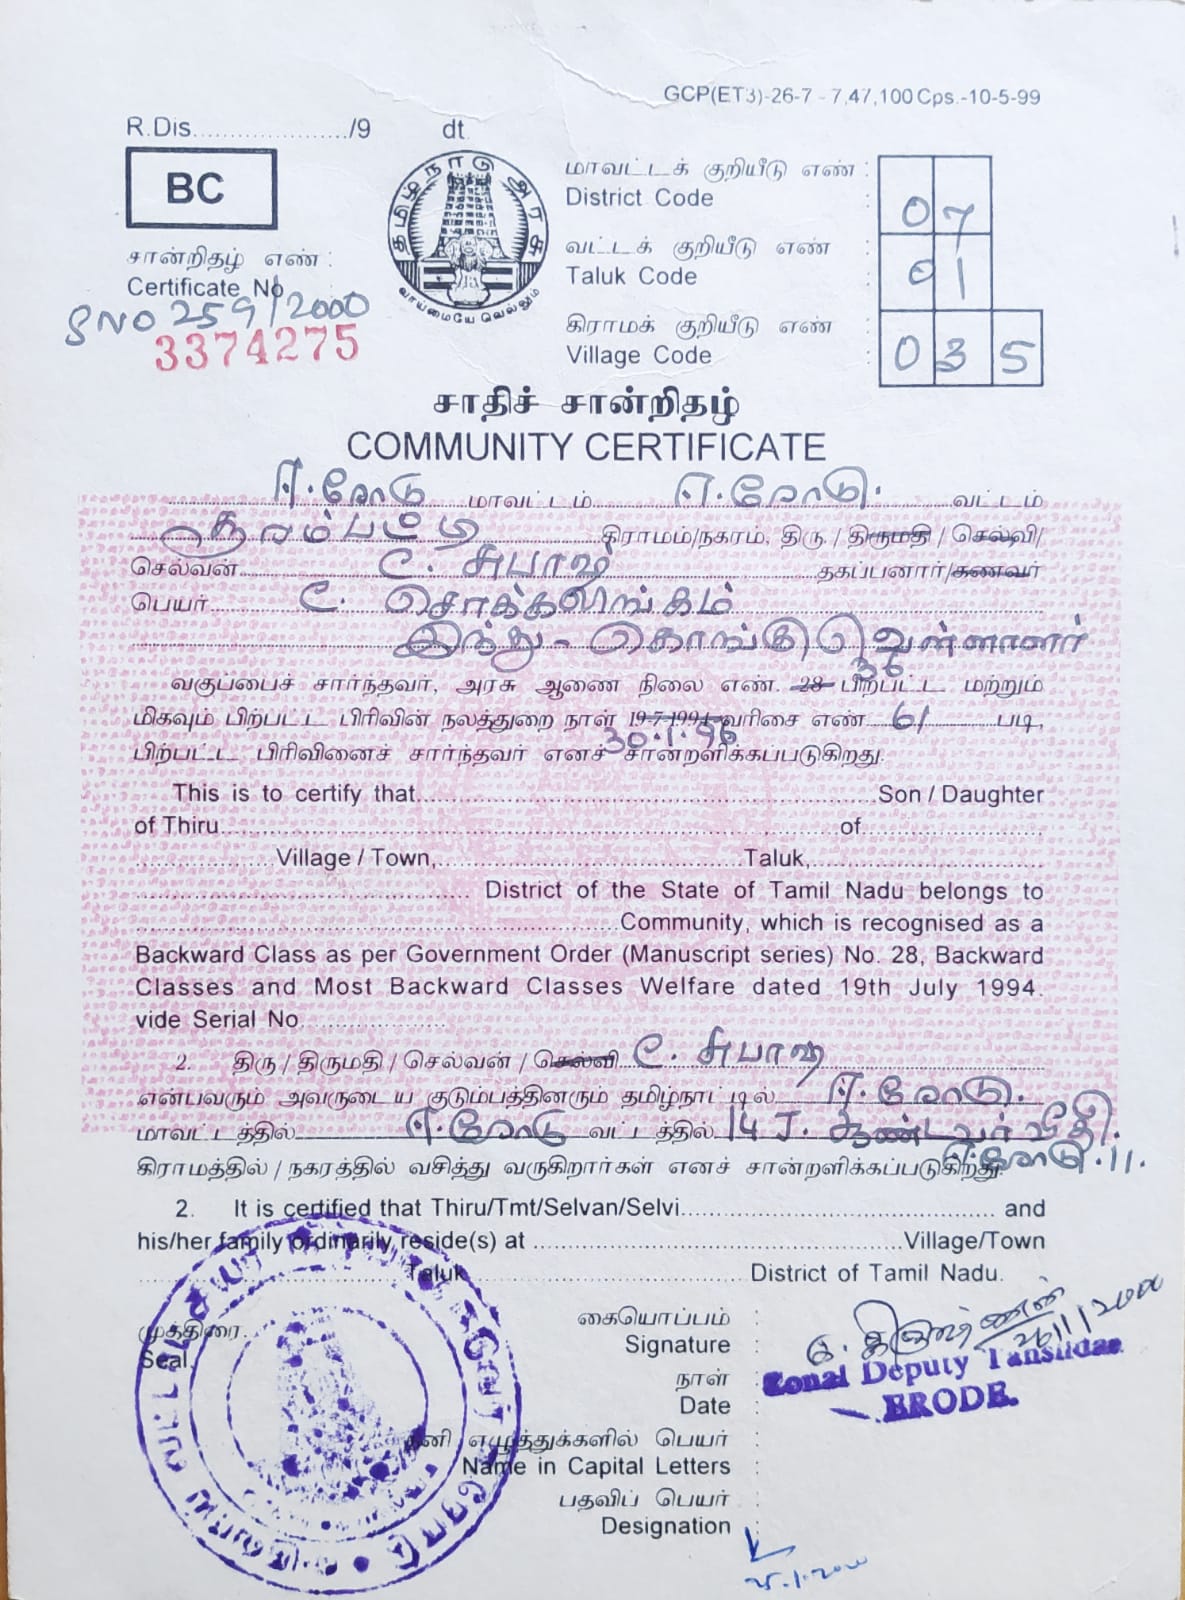 GCP(ET3)-26-7 - 7,47,100 Cps.-10-5-99
R.Dis...................../9 dt.
BC
தமிழ்நாடு அரசு
வாய்மையே வெல்லும்
மாவட்டக் குறியீடு எண் :
District Code : 07
வட்டக் குறியீடு எண் :
Taluk Code : 01
கிராமக் குறியீடு எண் :
Village Code : 035
சான்றிதழ் எண் :
Certificate No
SNO 259/2000
3374275
சாதிச் சான்றிதழ்
COMMUNITY CERTIFICATE
ஈரோடு மாவட்டம் ஈரோடு. வட்டம்
கிராமம்/நகரம், திரு / திருமதி / செல்வி/
செல்வன் C. சுபாஷ் தகப்பனார்/கணவர்
பெயர் C. சொக்கலிங்கம்
இந்து - கொங்கு வெள்ளாளர்
வகுப்பைச் சார்ந்தவர், அரசு ஆணை நிலை எண். 28 36 பிற்பட்ட மற்றும்
மிகவும் பிற்பட்ட பிரிவின் நலத்துறை நாள் 19-7-1994 30.1.96 வரிசை எண் 61 படி,
பிற்பட்ட பிரிவினைச் சார்ந்தவர் எனச் சான்றளிக்கப்படுகிறது.
This is to certify that..............................Son / Daughter
of Thiru..............................of....................
....................Village / Town,....................Taluk,....................
.................... District of the State of Tamil Nadu belongs to
..............................Community, which is recognised as a
Backward Class as per Government Order (Manuscript series) No. 28, Backward
Classes and Most Backward Classes Welfare dated 19th July 1994.
vide Serial No....................
2. திரு / திருமதி / செல்வன் / செல்வி C. சுபாஷ்
என்பவரும் அவருடைய குடும்பத்தினரும் தமிழ்நாட்டில் ஈரோடு.
மாவட்டத்தில் ஈரோடு வட்டத்தில் 14 J. வீதி.
ஈரோடு.11.
கிராமத்தில் / நகரத்தில் வசித்து வருகிறார்கள் எனச் சான்றளிக்கப்படுகிறது.
2. It is certified that Thiru/Tmt/Selvan/Selvi.............................. and
his/her family ordinarily reside(s) at ..............................Village/Town
....................Taluk....................District of Tamil Nadu.
முத்திரை.
Seal.
கையொப்பம் :
Signature :
26/1/2000
Zonal Deputy Tahsildar
ERODE.
நாள் :
Date :
தனி எழுத்துக்களில் பெயர் :
Name in Capital Letters :
பதவிப் பெயர் :
Designation :
25.1.2000